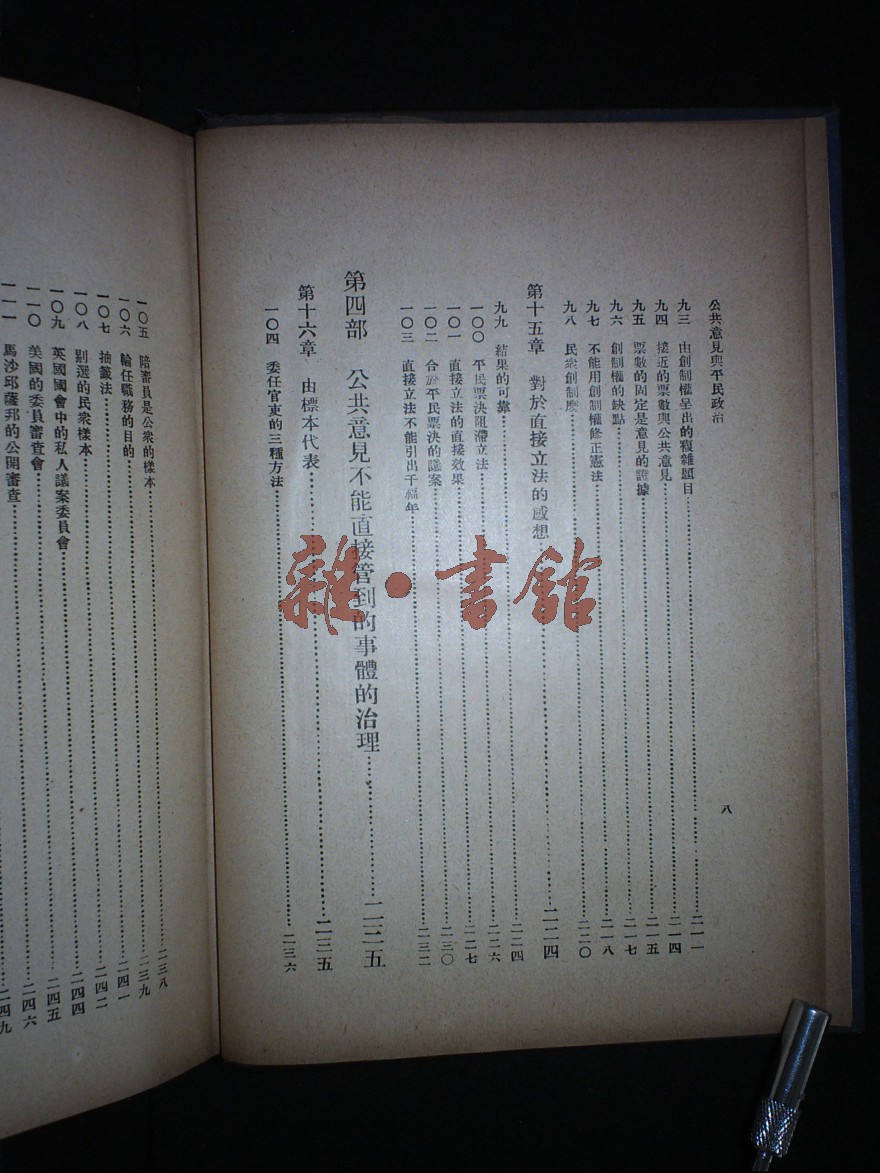 公共意見與平民政治
九三 由創制權呈出的複雜題目 二一一
九四 接近的票數與公共意見 二一四
九五 票數的固定是意見的證據 二一五
九六 創制權的缺點 二一七
九七 不能用創制權修正憲法 二一八
九八 民衆創制麽 二二〇
第十五章 對於直接立法的感想 二二四
九九 結果的可靠 二二四
一〇〇 平民票決阻滯立法 二二六
一〇一 直接立法的直接效果 二二七
一〇二 合於平民票決的議案 二三〇
一〇三 直接立法不能引出千福年 二三二
第四部 公共意見不能直接管到的事體的治理 二三五
第十六章 由標本代表 二三五
一〇四 委任官吏的三種方法 二三六
八
一〇五 陪審員是公衆的樣本 二三八
一〇六 輪任職務的目的 二三九
一〇七 抽籤法 二四一
一〇八 剔選的民衆樣本 二四二
一〇九 英國國會中的私人議案委員會 二四四
一一〇 美國的委員審查會 二四五
一一一 馬沙邱薩邦的公開審查 二四六
二四九
雜·書館